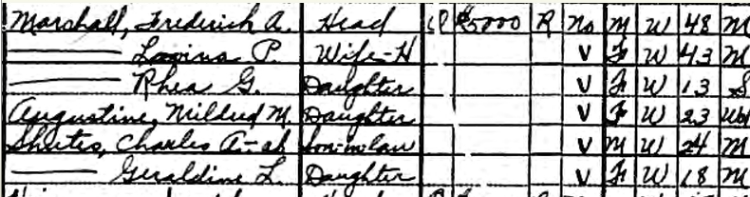 Marshall, Frederick A. Head O $5000 R No M W 48 M
Lovina P. Wife-H V F W 43 M
Rhea G. Daughter V F W 13 S
Augustine, Mildred M. Daughter V F W 23 Wd
Shutes, Charles A-ab Son-in-law V M W 24 M
Geraldine L. Daughter V F W 18 M